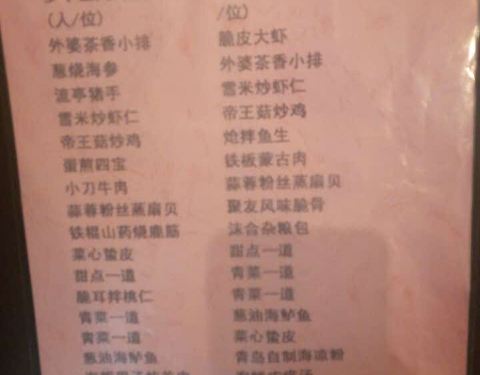 (人/位)
外婆茶香小排
葱烧海参
流亭猪手
雪米炒虾仁
帝王菇炒鸡
蛋煎四宝
小刀牛肉
蒜蓉粉丝蒸扇贝
铁棍山药烧鹿筋
菜心蛰皮
甜点一道
脆耳拌桃仁
青菜一道
青菜一道
葱油海鲈鱼
/位)
脆皮大虾
外婆茶香小排
雪米炒虾仁
帝王菇炒鸡
炝拌鱼生
铁板蒙古肉
蒜蓉粉丝蒸扇贝
聚友风味脆骨
沫合杂粮包
甜点一道
青菜一道
青菜一道
葱油海鲈鱼
菜心蛰皮
青岛自制海凉粉